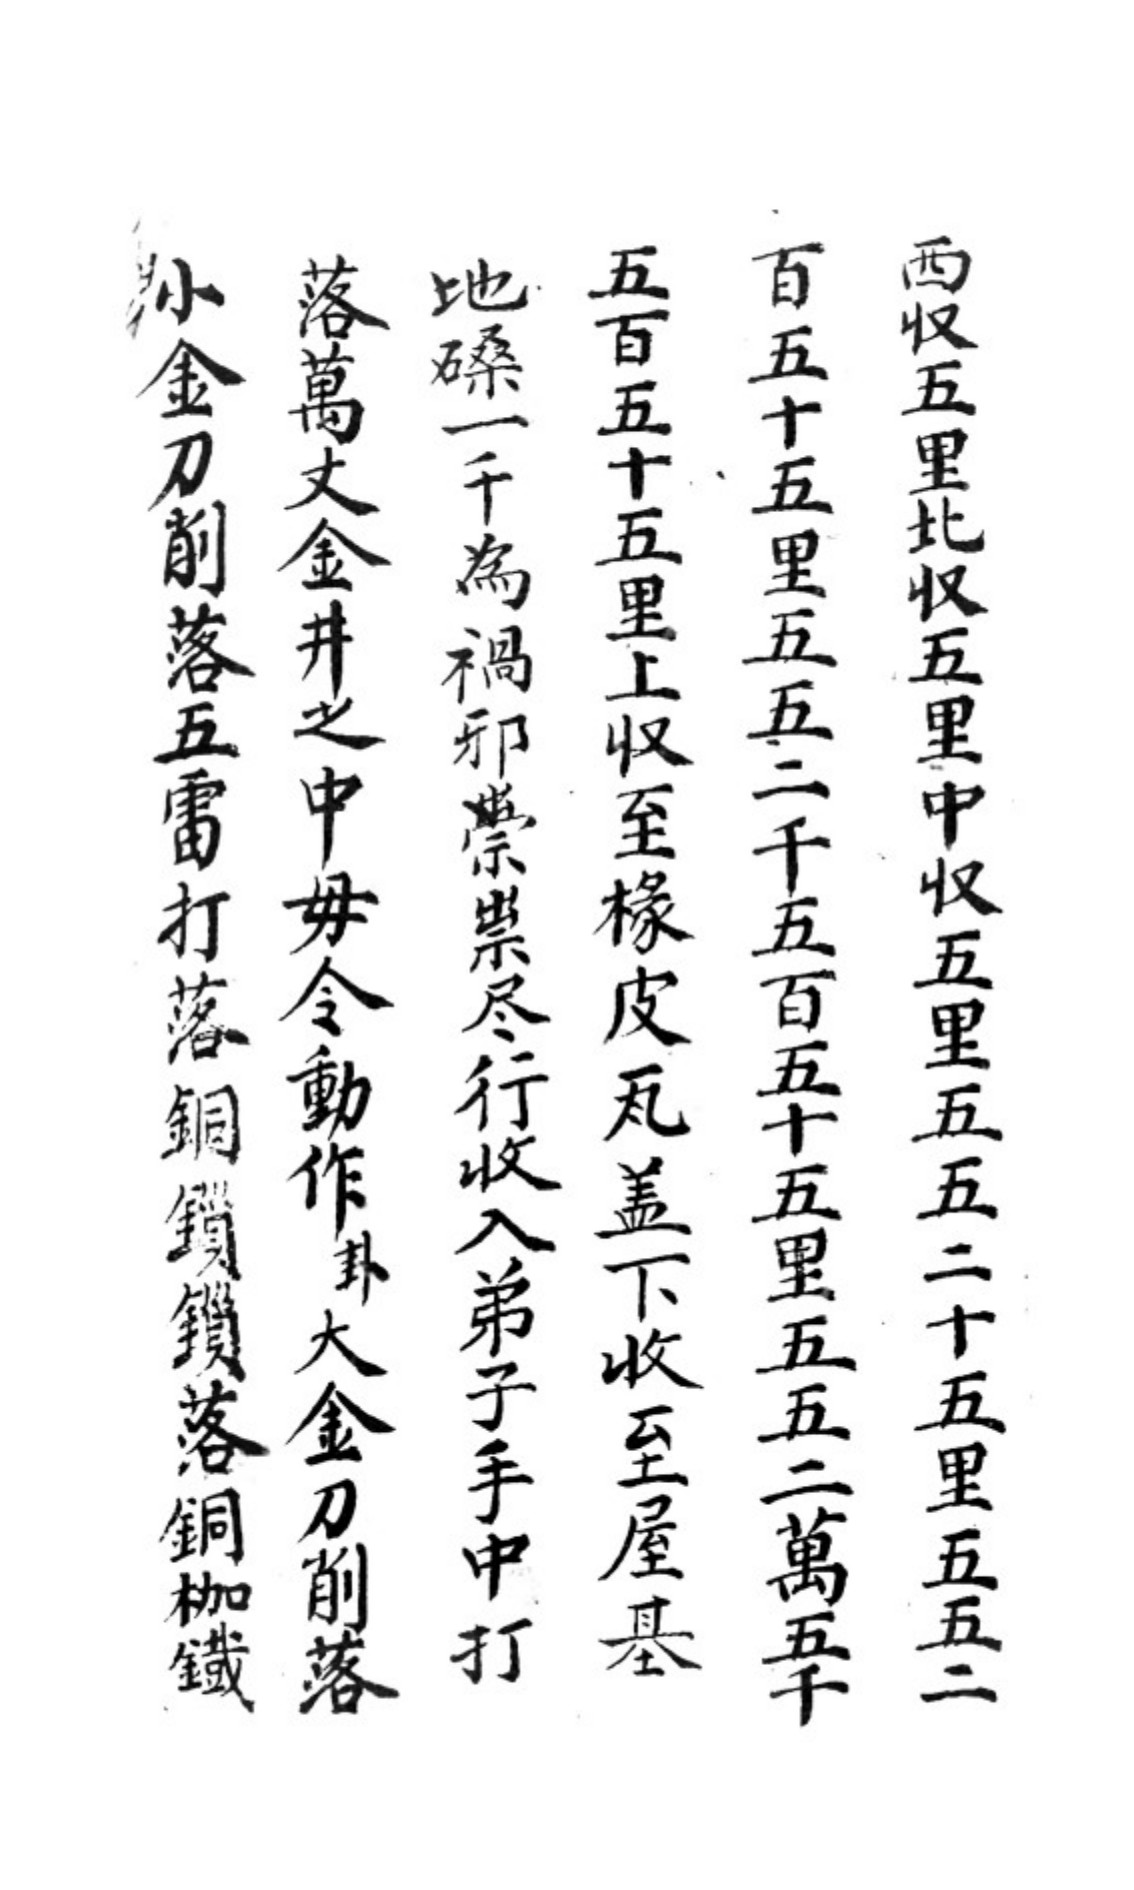 西収五里北収五里中収五里五五二十五里五五二
百五十五里五五二千五百五十五里五五二萬五千
五百五十五里上収至椽皮瓦盖下收至屋基
地磉一千為禍邪祟祟尽行收入弟子手中打
落萬丈金井之中毋令動作卦大金刀削落
小金刀削落五雷打落銅鎖鎖落銅枷鐵